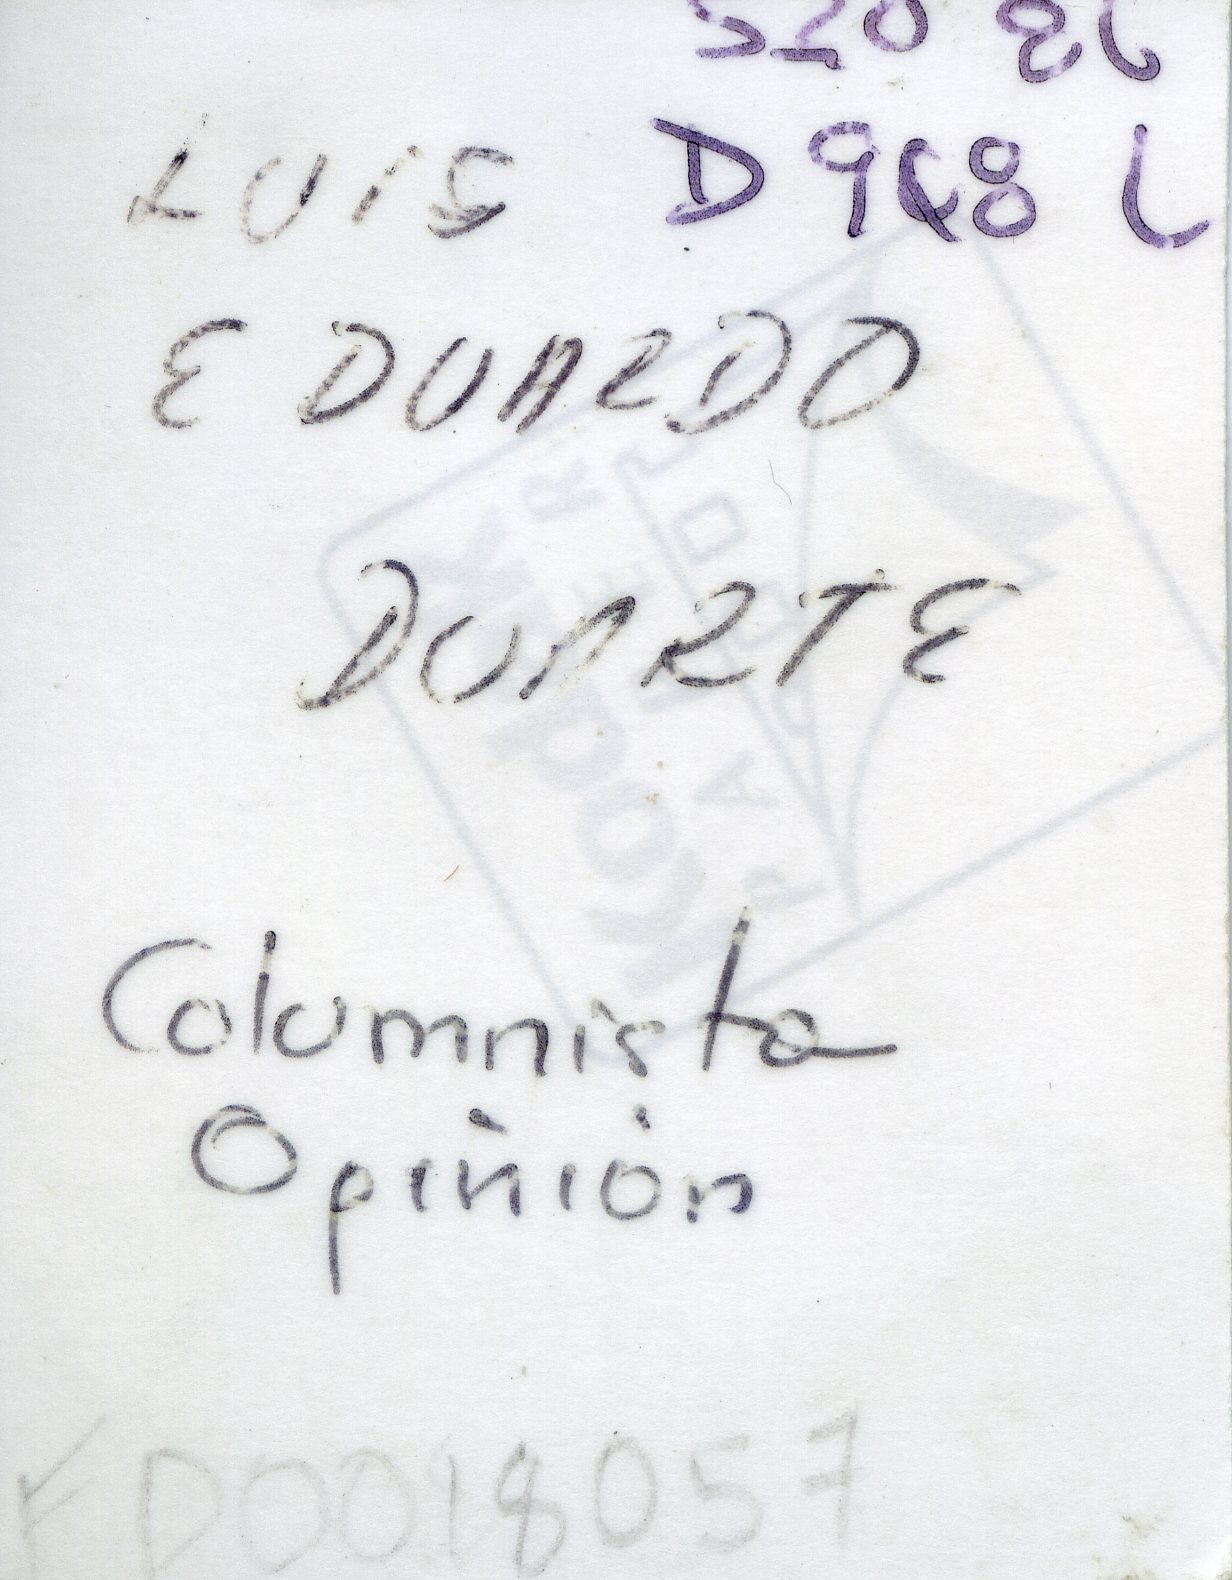 LUIS D 968 L
EDUARDO
DUARTE
Columnista
Opinión
FD0018057